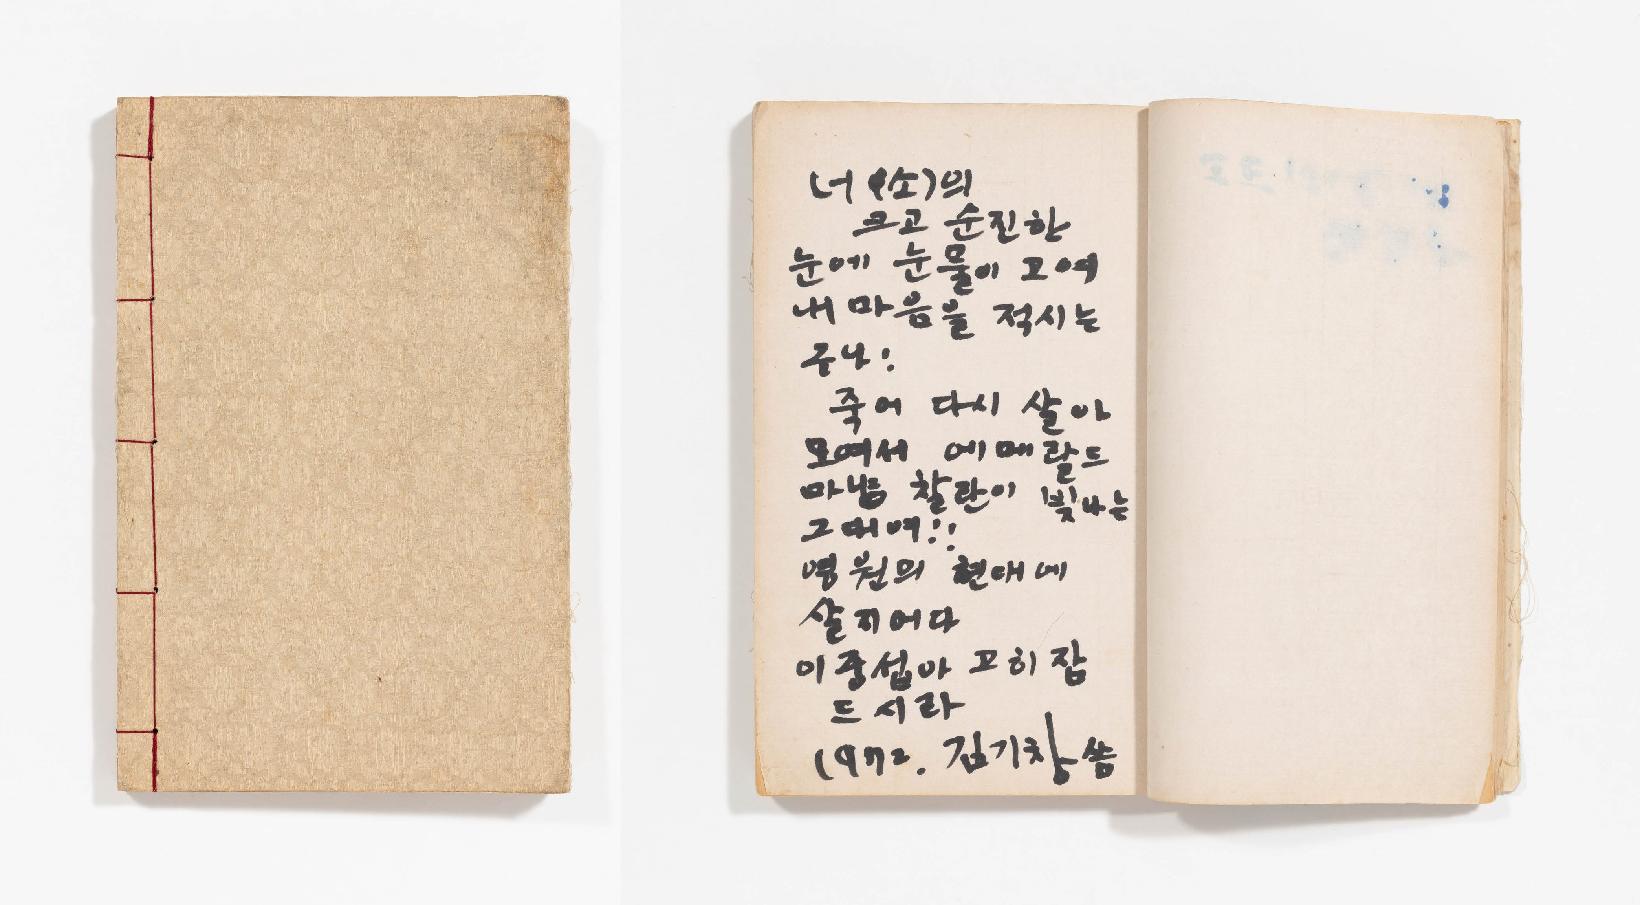 너 (소)의
크고 순진한
눈에 눈물이 고여
내 마음을 적시는
구나!
죽어 다시 살아
모여서 에메랄드
마냥 찰란이 빛나는
그대여!!
영원의 현대에
살지어다
이중섭아 고히 잠
드시라
1972. 김기창 씀